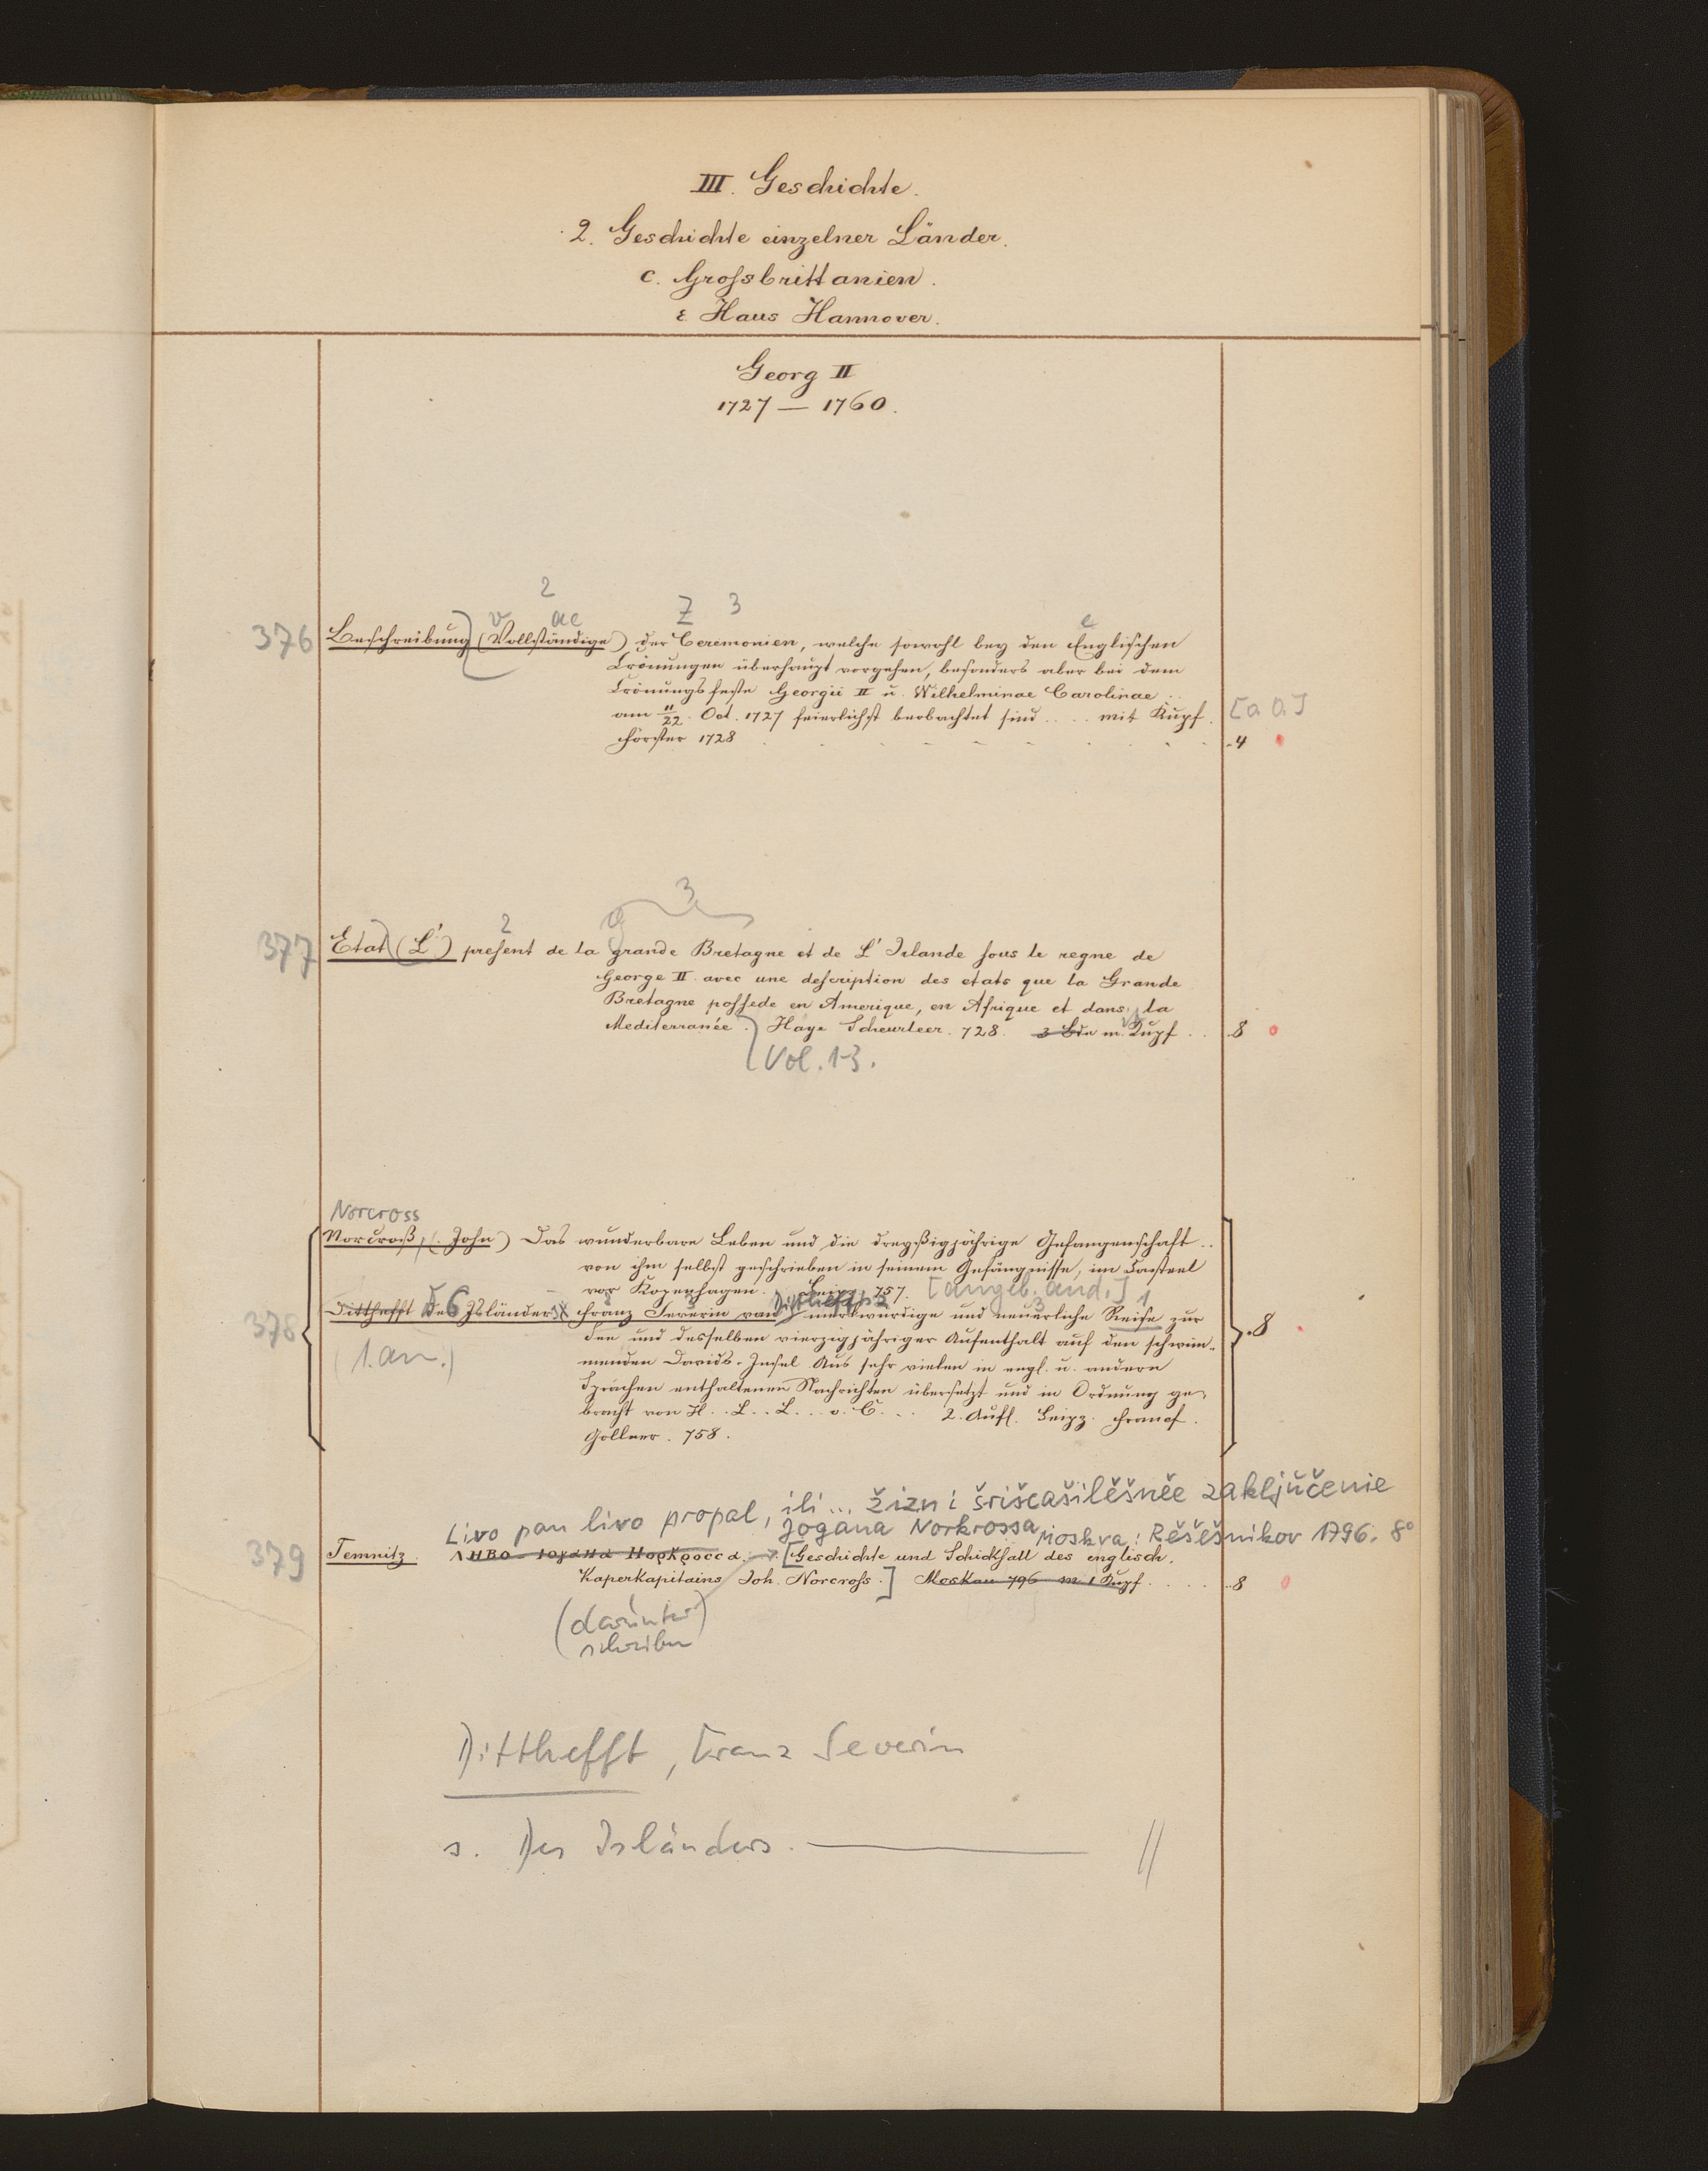 III. Geschichte.
2. Geschichte einzelner Länder.
c. Grossbrittanien.
ε Haus Hannover.
Georg II
1727 — 1760.
2
v ae Z 3 e
376 Beschreibung (Vollständige) der Ceremonien, welche sowohl bey den Englischen
Crönungen überhaupt vorgehen, besonders aber bei dem
Crönungsfeste Georgii II u. Wilhelminae Carolinae ..
am 11/22. Oct. 1727 feierlichst beobachtet sind .... mit Kupf. [a a]
Förster 1728 4
3
2 g
377 Etat (L') present de la grande Bretagne et de L' Irlande sous le regne de
George II. avec une description des etats que la Grande
Bretagne possede en Amerique, en Afrique et dans la
Mediterranée. Haye Scheurleer. 728. 3 Bde m. Kupf .. 8
Vol. 1-3.
Norcross
Norcroß, (John) Das wunderbare Leben und die dreyßigjährige Gefangenschaft ..
von ihm selbst geschrieben in seinem Gefängnisse, im Casteel
vor Kopenhagen. Leipz. 757. [angeb. and.] 1
378 Ditthefft Des Isländers Franz Severin van Ditthefft's merkwürdige und neuerliche Reise zur 8
(1. an.) den und desselben vierzigjähriger Aufenthalt auf den schwim-
menden Davids-Insel. Aus sehr vielen in engl. u. andern
Sprachen enthaltenen Nachrichten übersetzt und in Ordnung ge-
bracht von H .. L .. L ... v. C. ... 2. Aufl. Leipz. Francf.
Göllner. 758.
Livo pan livo propal, ili ... žizn i šrišcašilěšněe zaključenie
Jogana Norkrossa Moskva: Rěšěšnikov 1796. 8°
379 Temnitz. ЛИВО Іогана Норкросса. [Geschichte und Schicksall des englisch.
Kaperkapitains Joh. Norcross.] Moskau 796 m 1 Kupf. .... 8
(darunter
schreiben
Ditthefft, Franz Severin
s. Des Isländers. —